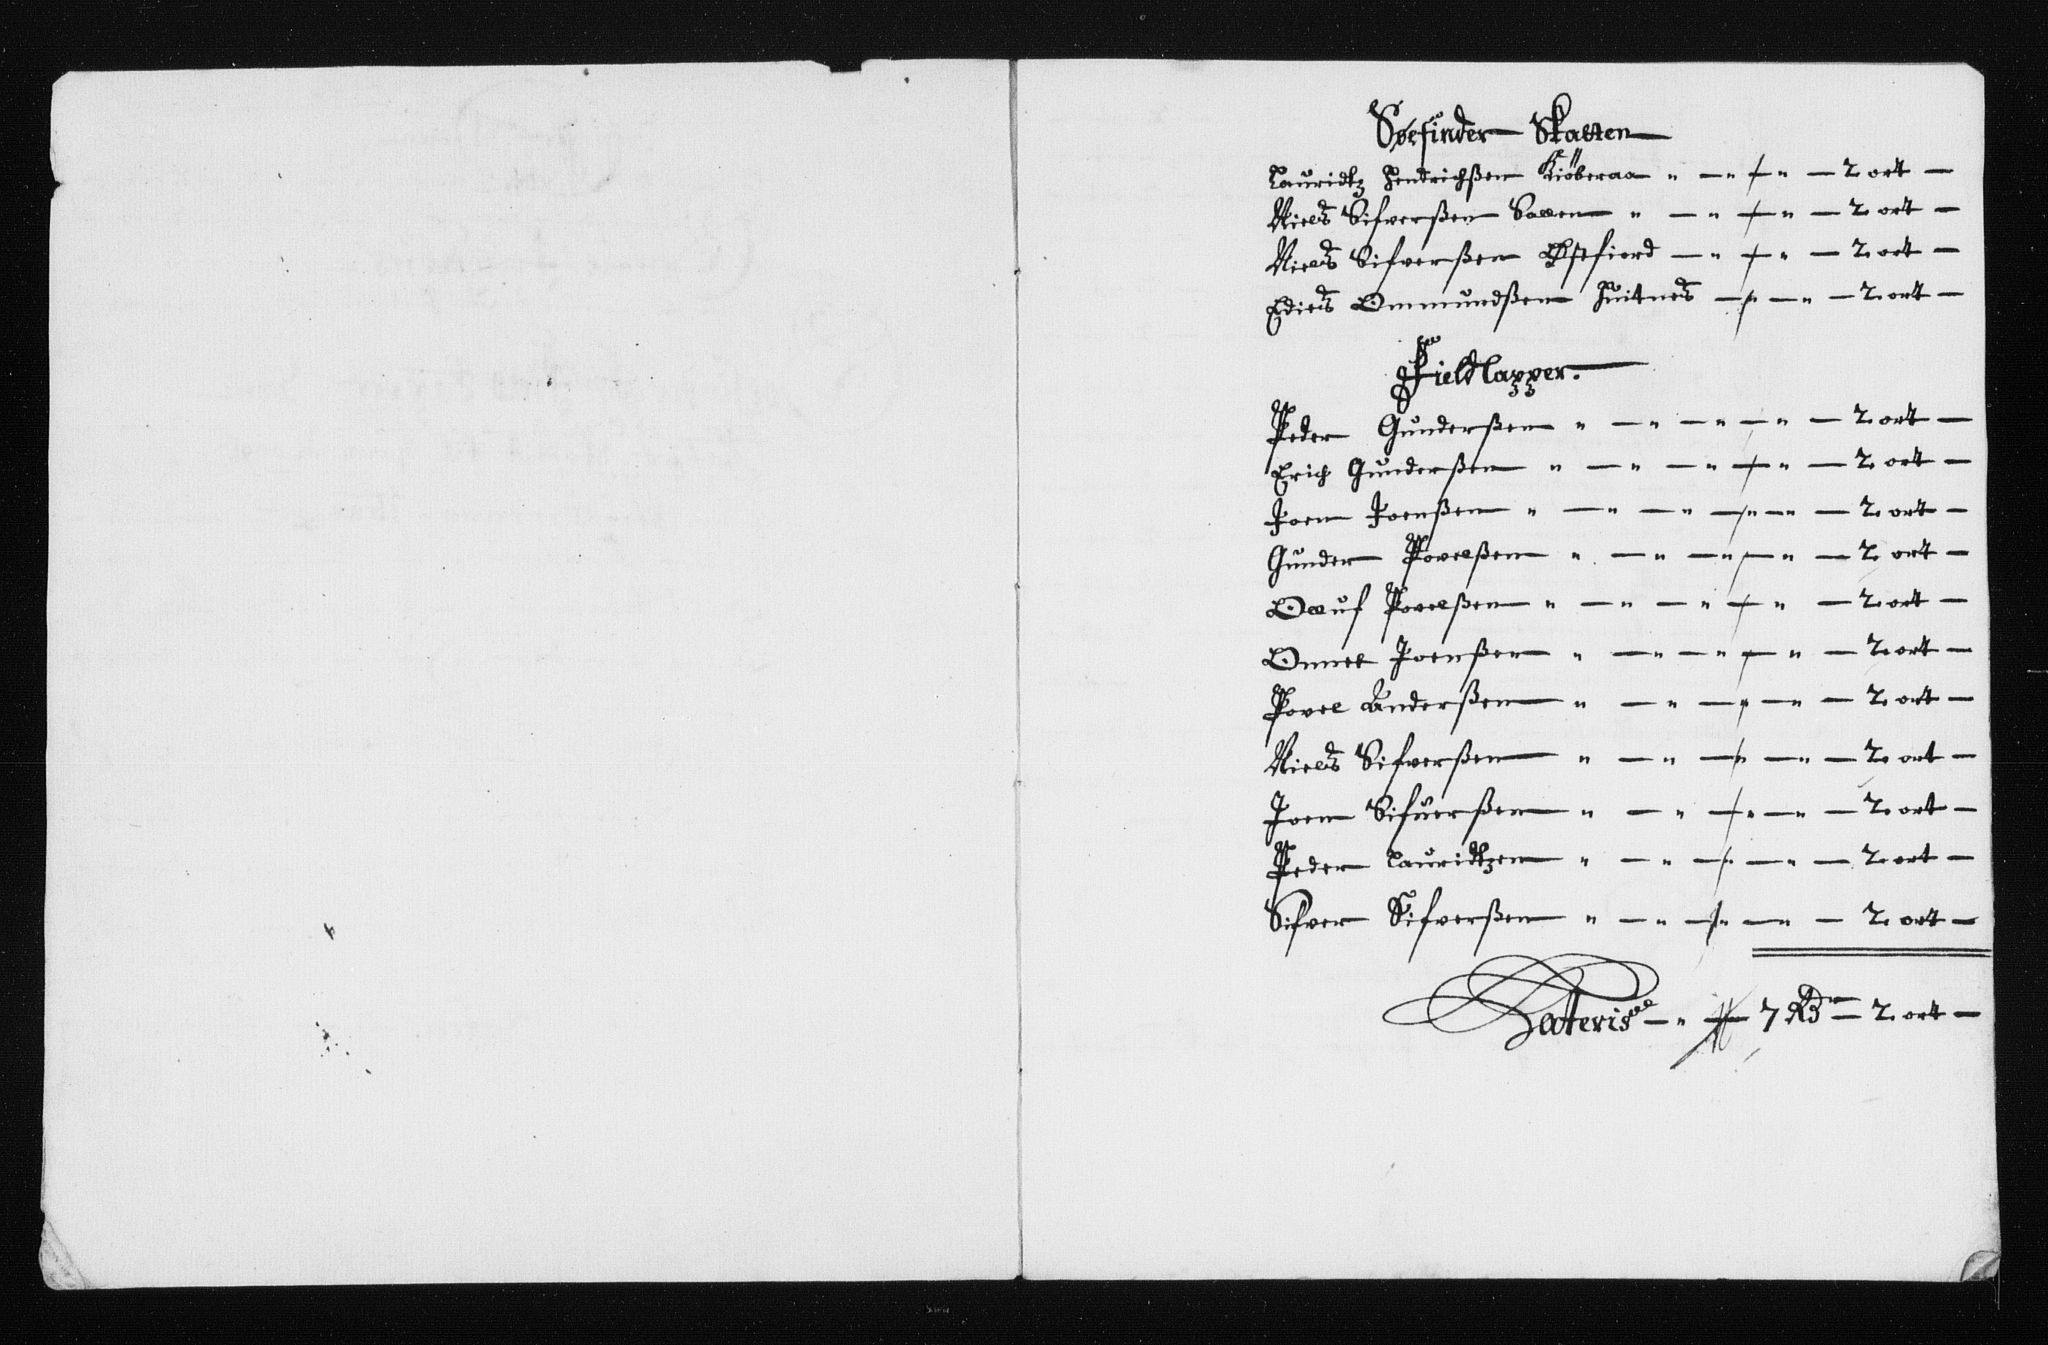 Søefinder Skatten
Lauridtz Hendrichßen Kiøberaa " — " — " — 2 ort —
Niels Sifverßen Salten " — " — " — 2 ort —
Niels Sifverßen Østfiord — " — " — 2 ort —
Ediels Ommundßen Huitnes — " — " — 2 ort —
Fieldlapper.
Peder Gunderßen " — " — " — " — 2 ort —
Erich Gunderßen " — " — " — " — 2 ort —
Joen Joenßen " — " — " — " — " — 2 ort —
Gunder Povelßen " — " — " — " — 2 ort —
Oluf Povelßen " — " — " — " — 2 ort —
Onnet Joenßen " — " — " — " — 2 ort —
Povel Anderßen " — " — " — " — 2 ort —
Niels Sifverßen " — " — " — " — 2 ort —
Joen Sifuerßen " — " — " — " — 2 ort —
Peder Lauridtzen " — " — " — " — 2 ort —
Sifver Sifverßen " — " — " — " — 2 ort —
Lateris — " — 7 Rdr — 2 ort —